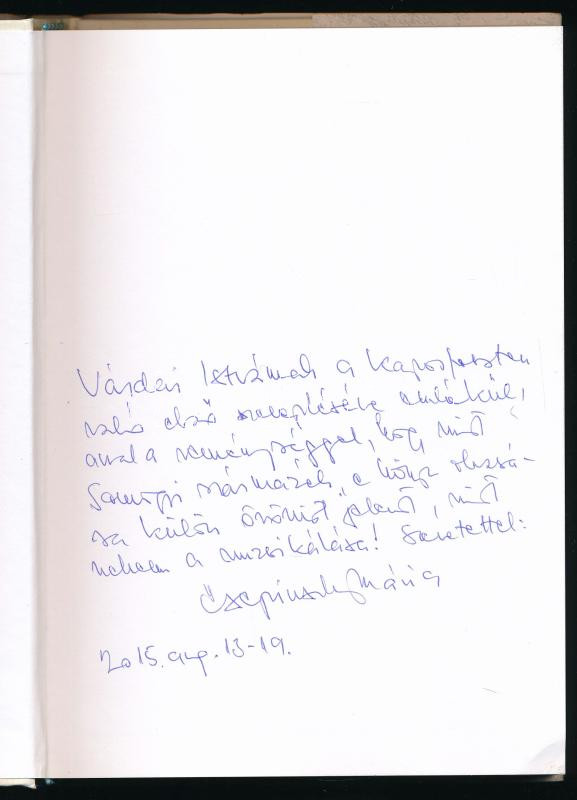 Várdai Istvánnak a Kaposfeszten
való első szereplésére emlékül,
azzal a reménységgel, hogy mint
Somogyi származék, e könyv olvasá-
sa külön örömöt jelent, mint
nekem a muzsikálása! Szeretettel:
Csepinszky Mária
2015. aug. 13-19.